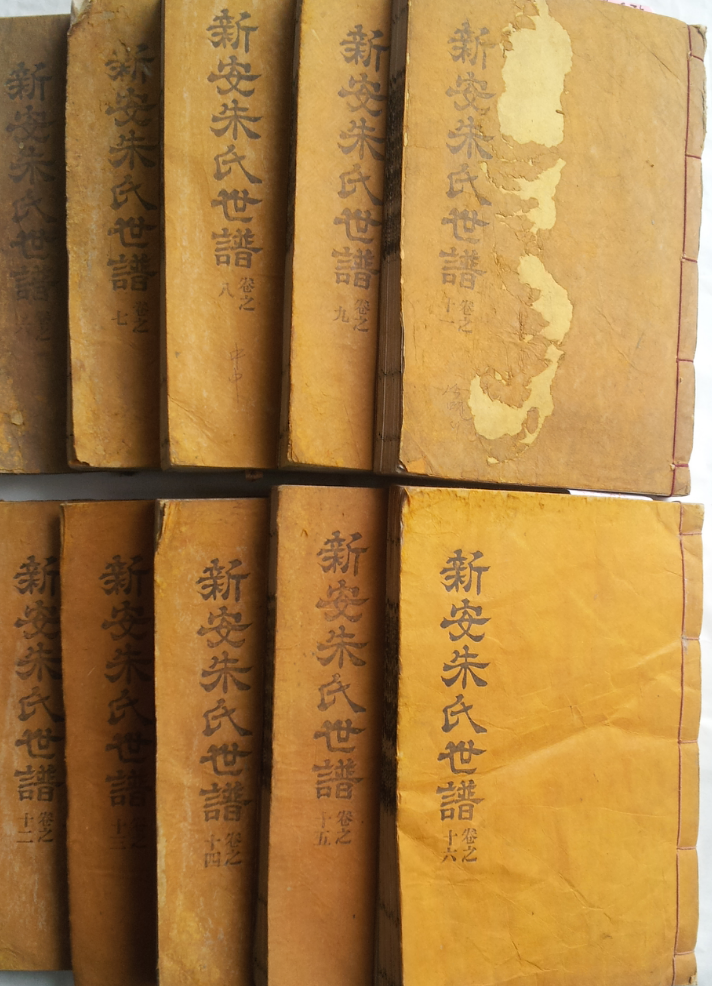 新安朱氏世譜
卷之
新安朱氏世譜
卷之
七
新安朱氏世譜
卷之
八
新安朱氏世譜
卷之
九
新安朱氏世譜
卷之
十一
新安朱氏世譜
卷之
十二
新安朱氏世譜
卷之
十三
新安朱氏世譜
卷之
十四
新安朱氏世譜
卷之
十五
新安朱氏世譜
卷之
十六